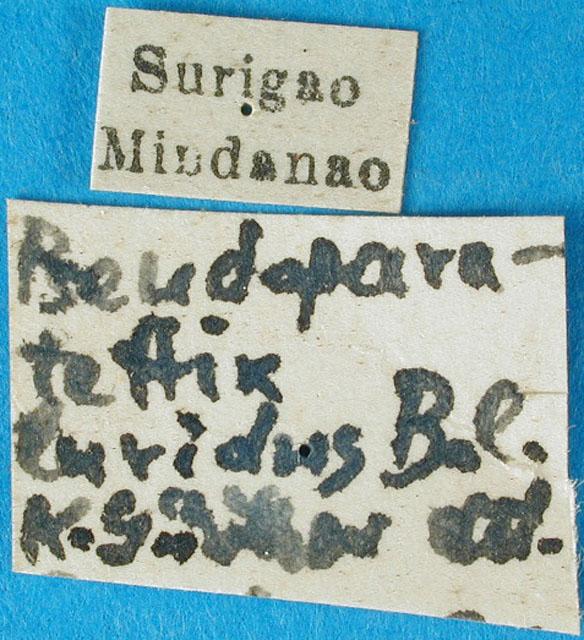 Surigao
Mindanao
Pseudopara-
tettix
luridus Bol.
K. G.